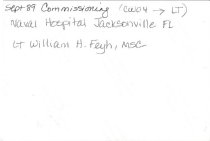 Sept 89 Commissioning (CWO4 → LT)
Naval Hospital Jacksonville FL
LT William H. Feyh, MSC